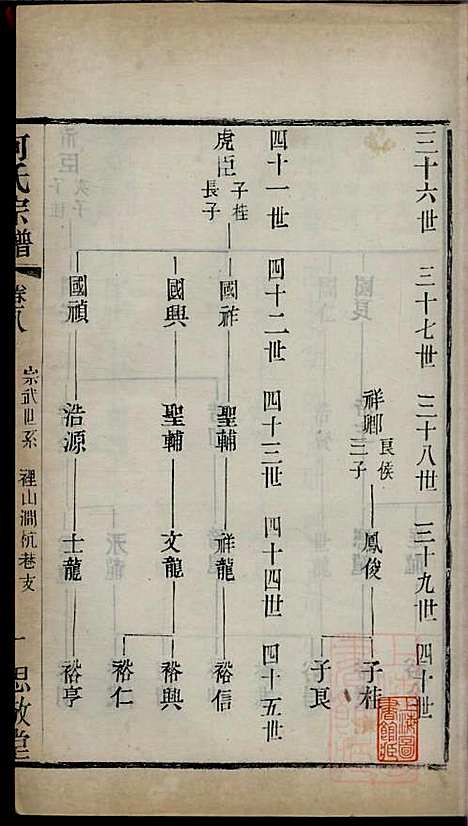 三十六世 三十七世 三十八世 三十九世 四十世
祥卿 良侯三子 鳳俊 子桂
子良
四十一世 四十二世 四十三世 四十四世 四十五世
虎臣 子桂長子 國祚 聖輔 祥龍 裕信
國興 聖輔 文龍 裕興
裕仁
國禎 浩源 士龍 裕亨
何氏宗譜 卷八 宗武世系 裡山澗杭巷支 一 思敬堂
上海圖書館藏